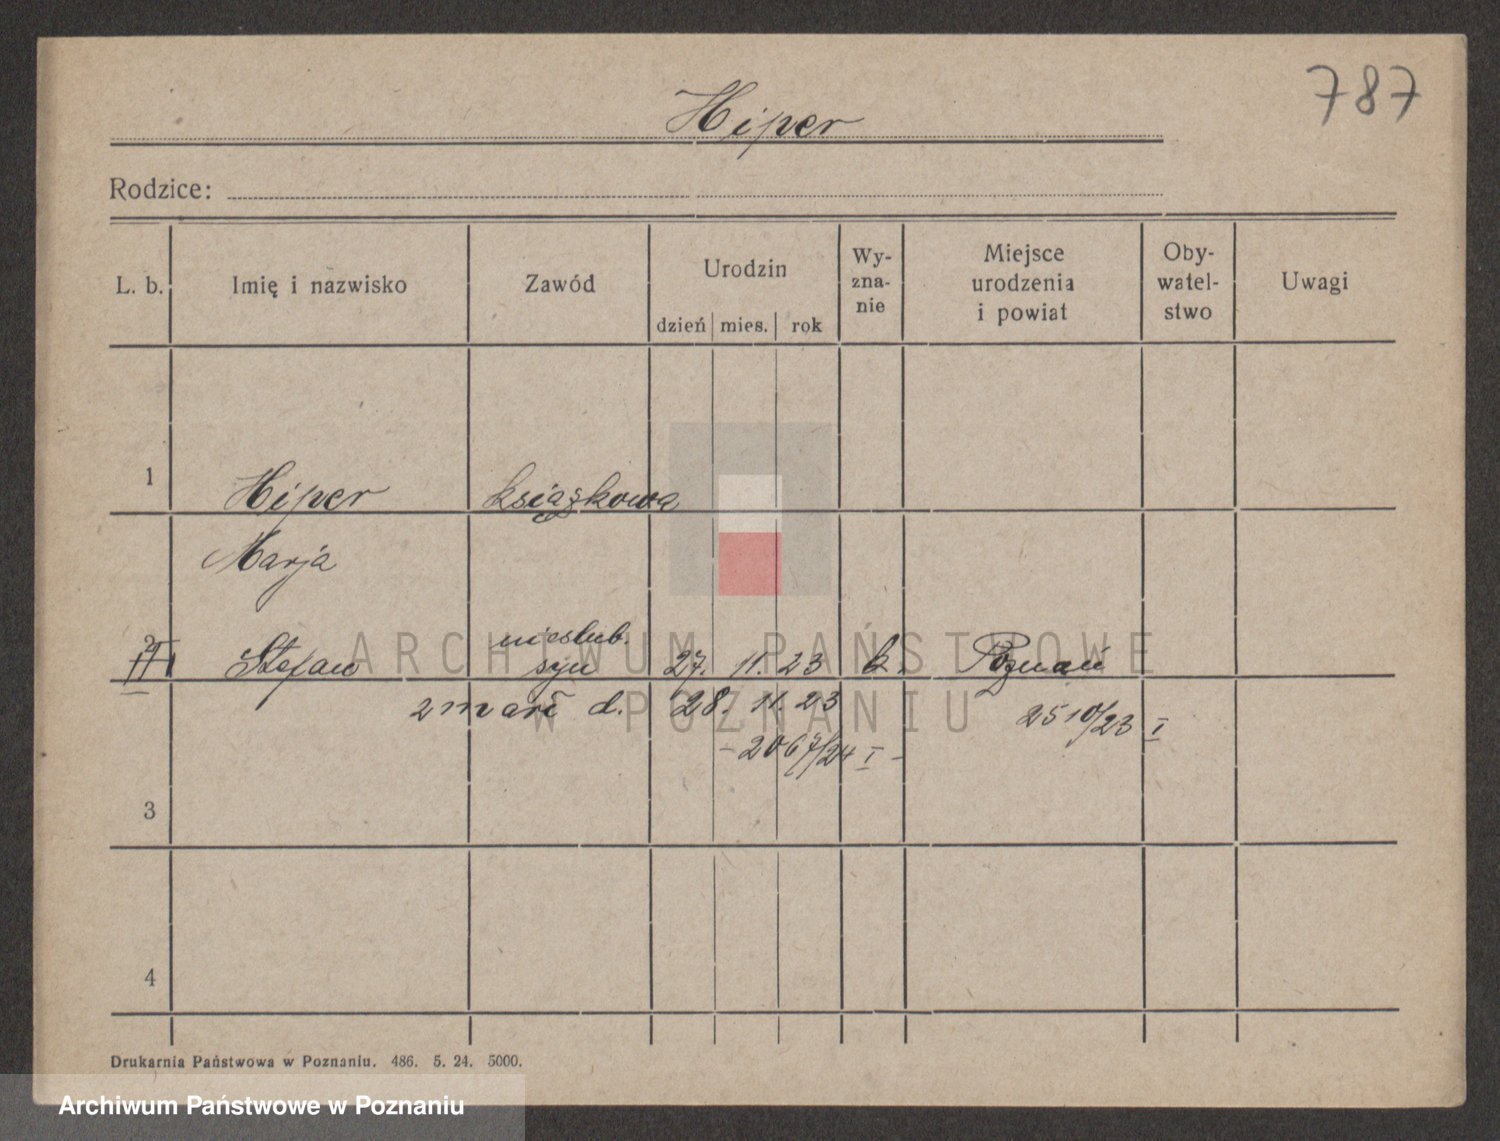 787
Hiper
Rodzice:
L. b. Imię i nazwisko Zawód Urodzin dzień mies. rok Wy-zna-nie Miejsce urodzenia i powiat Oby-watel-stwo Uwagi
1 Hiper książkowa
Marja
nieslub.
2 II Stefan syn 27. 11. 23 k. Poznań
zmarł d. 28. 11. 23 2510/23 I
- 2067/24 I -
3
4
Drukarnia Państwowa w Poznaniu. 486. 5. 24. 5000.
ARCHIWUM PAŃSTWOWE
W POZNANIU
Archiwum Państwowe w Poznaniu